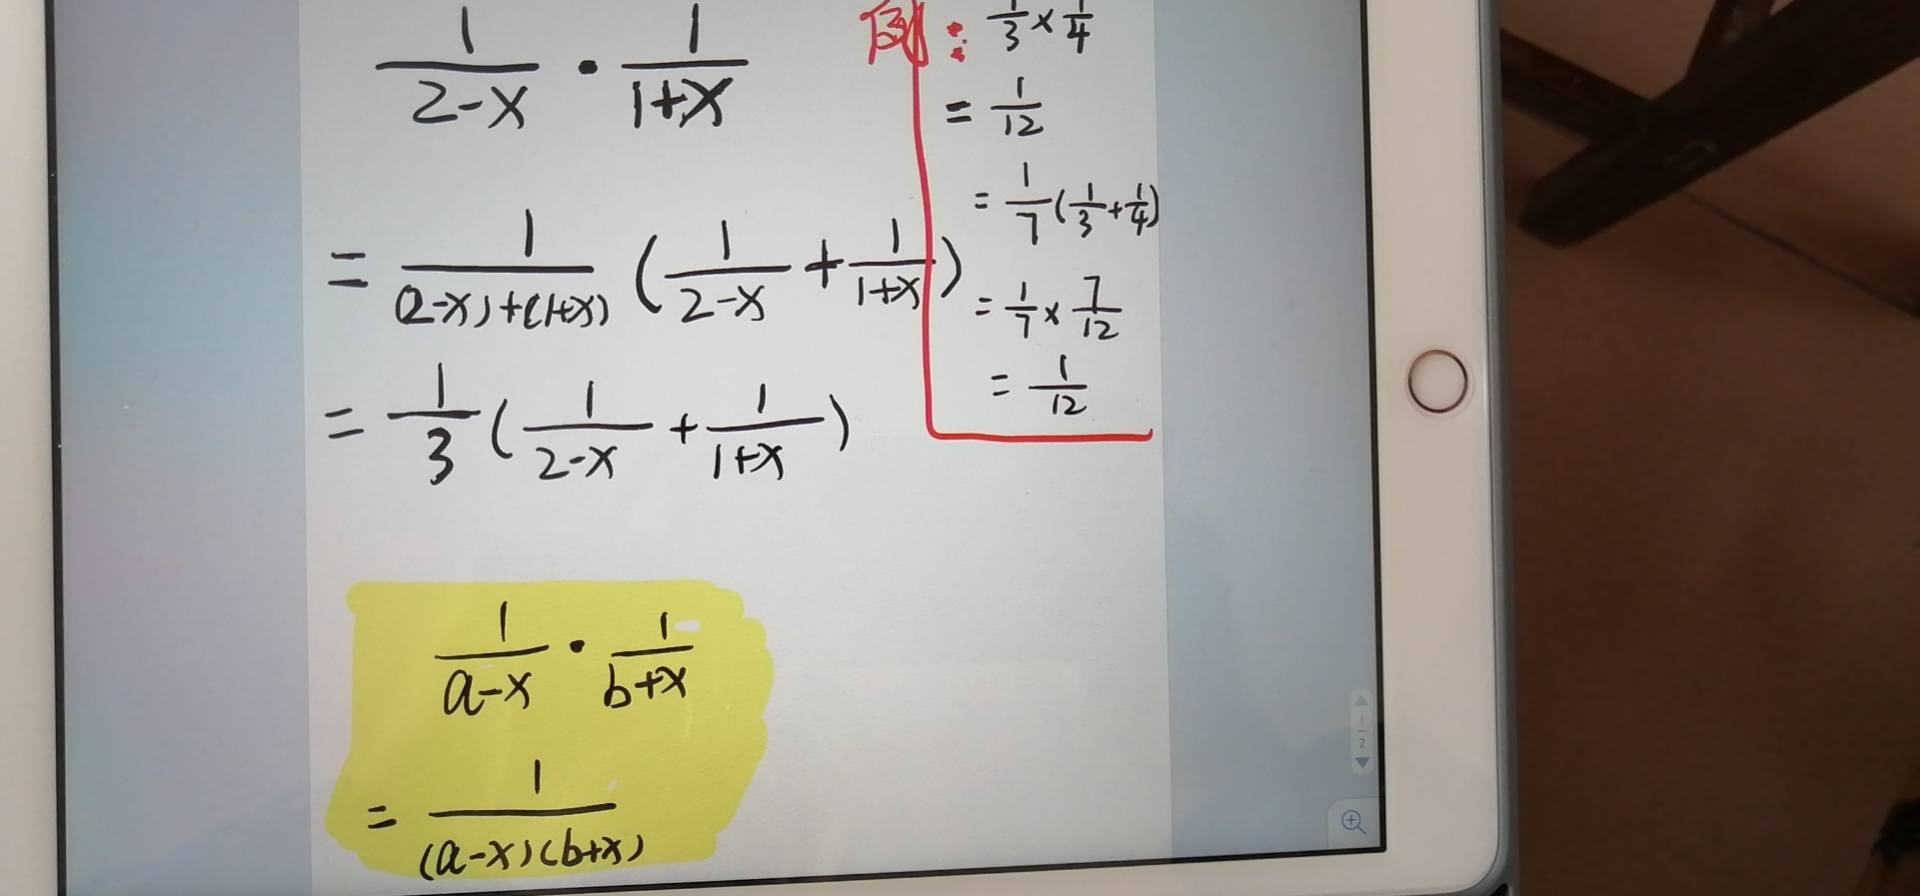 1/(2-x) · 1/(1+x)
= 1/((2-x)+(1+x)) (1/(2-x) + 1/(1+x))
= 1/3 (1/(2-x) + 1/(1+x))
例: 1/3 × 1/4
= 1/12
= 1/7 (1/3 + 1/4)
= 1/7 × 7/12
= 1/12
1/(a-x) · 1/(b+x)
= 1/((a-x)(b+x))
1
2